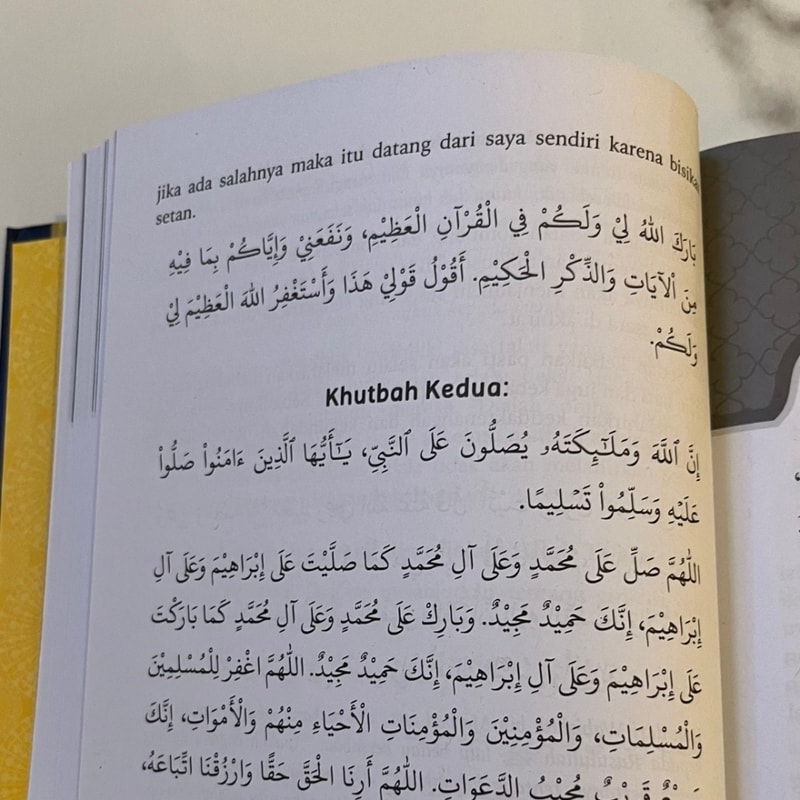 jika ada salahnya maka itu datang dari saya sendiri karena
setan.
بَارَكَ اللهُ لِيْ وَلَكُمْ فِي الْقُرْآنِ الْعَظِيْمِ، وَنَفَعَنِيْ وَإِيَّاكُمْ بِمَا فِيْهِ
مِنَ الْآيَاتِ وَالذِّكْرِ الْحَكِيْمِ. أَقُوْلُ قَوْلِيْ هَذَا وَأَسْتَغْفِرُ اللهَ الْعَظِيْمَ لِيْ
وَلَكُمْ.
Khutbah Kedua:
إِنَّ ٱللَّهَ وَمَلَـٰٓئِكَتَهُۥ يُصَلُّونَ عَلَى ٱلنَّبِيِّ، يَـٰٓأَيُّهَا ٱلَّذِينَ ءَامَنُوا۟ صَلُّوا۟
عَلَيْهِ وَسَلِّمُوا۟ تَسْلِيمًا.
اللّٰهُمَّ صَلِّ عَلَى مُحَمَّدٍ وَعَلَى آلِ مُحَمَّدٍ كَمَا صَلَّيْتَ عَلَى إِبْرَاهِيْمَ وَعَلَى آلِ
إِبْرَاهِيْمَ، إِنَّكَ حَمِيْدٌ مَجِيْدٌ. وَبَارِكْ عَلَى مُحَمَّدٍ وَعَلَى آلِ مُحَمَّدٍ كَمَا بَارَكْتَ
عَلَى إِبْرَاهِيْمَ وَعَلَى آلِ إِبْرَاهِيْمَ، إِنَّكَ حَمِيْدٌ مَجِيْدٌ. اللّٰهُمَّ اغْفِرْ لِلْمُسْلِمِيْنَ
وَالْمُسْلِمَاتِ، وَالْمُؤْمِنِيْنَ وَالْمُؤْمِنَاتِ الْأَحْيَاءِ مِنْهُمْ وَالْأَمْوَاتِ، إِنَّكَ
قَرِيْبٌ مُجِيْبُ الدَّعَوَاتِ. اللّٰهُمَّ أَرِنَا الْحَقَّ حَقًّا وَارْزُقْنَا اتِّبَاعَهُ،